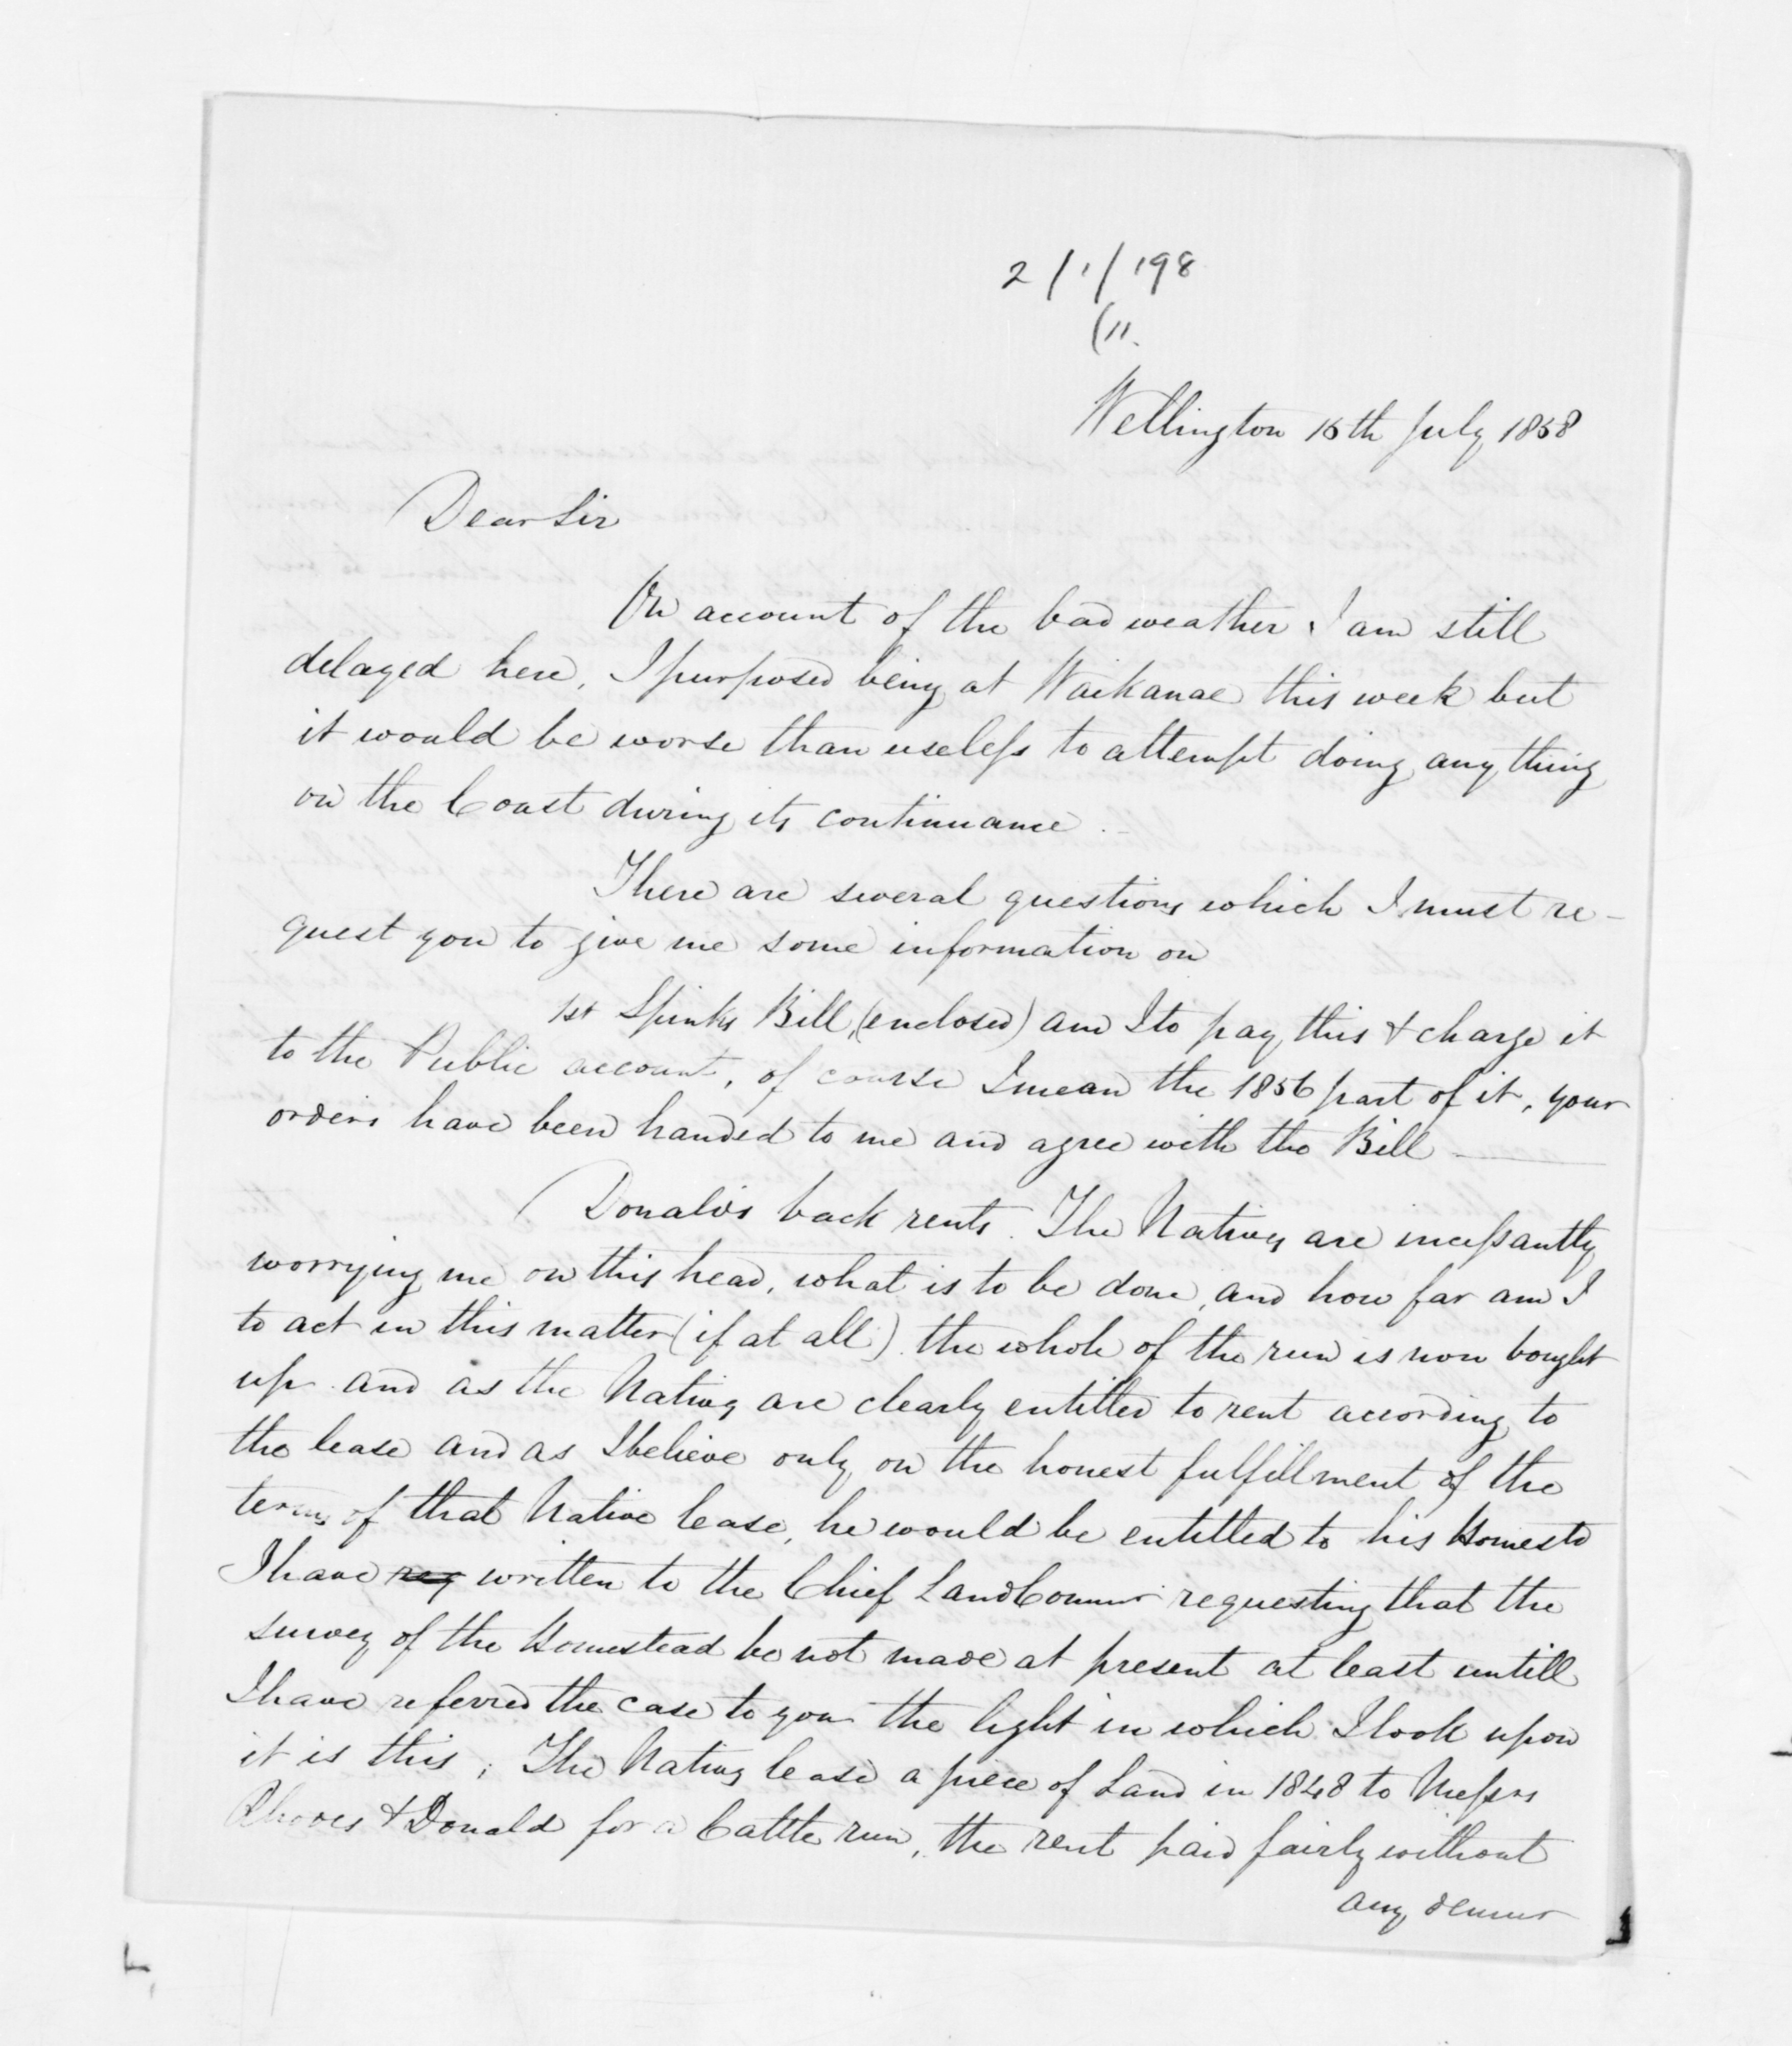 2/1/198
(11.
Wellington 15th July 1858
Dear Sir
On account of the bad weather I am still
delayed here, I purposed being at Waikanae this week but
it would be worse than useless to attempt doing any thing
on the Coast during its continuance.
There are several questions which I must re-
quest you to give me some information on
1st Spinks Bill, (enclosed) am I to pay this & charge it
to the Public account, of course I mean the 1856 part of it, your
orders have been handed to me and agree with the Bill
Donalds back rents. The Natives are incessantly
worrying me on this head, what is to be done, and how far am I
to act in this matter (if at all). the whole of the run is now bought
up and as the Natives are clearly entitled to rent according to
the lease and as I believe only on the honest fulfillment of the
terms of that Native lease, he would be entitled to his Homestd
I have req written to the Chief Land Commr requesting that the
survey of the Homestead be not made at present at least untill
I have referred the case to you the light in which I look upon
it is this; The Natives lease a piece of Land in 1848 to Messrs
Rhodes & Donald for a Cattle run, the rent paid fairly without
any demur